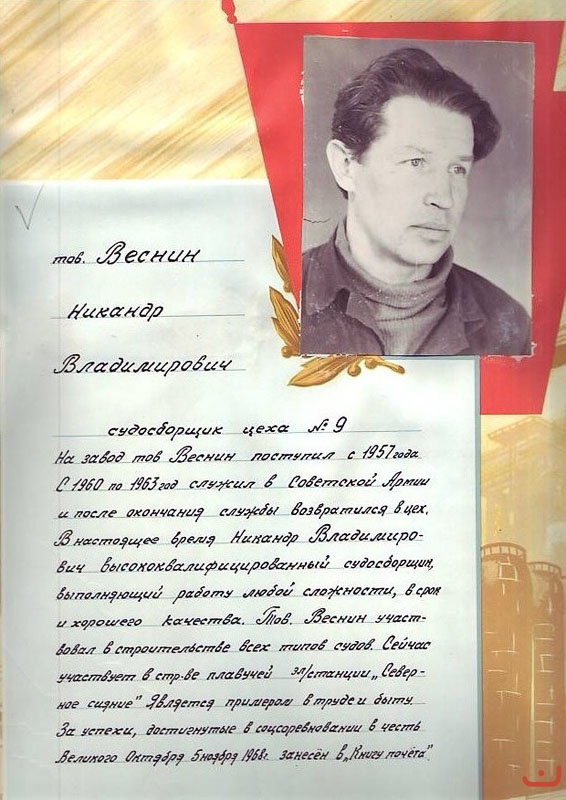 тов. Веснин
Никандр
Владимирович
судосборщик цеха № 9
На завод тов Веснин поступил с 1957 года
С 1960 по 1963 год служил в Советской Армии
и после окончания службы возвратился в цех.
В настоящее время Никандр Владимиро-
вич высококвалифицированный судосборщик,
выполняющий работу любой сложности, в срок
и хорошего качества. Тов. Веснин участ-
вовал в строительстве всех типов судов. Сейчас
участвует в стр-ве плавучей эл/станции „Север-
ное сияние" Является примером в труде и быту.
За успехи, достигнутые в соцсоревновании в честь
Великого Октября 5 ноября 1968г. занесён в „Книгу почёта"